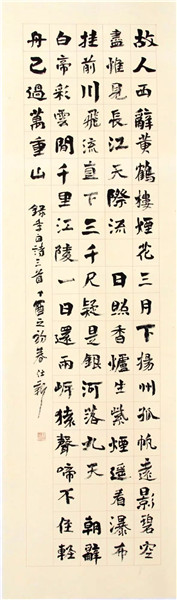 故人西辭黃鶴樓煙花三月下揚州孤帆遠影碧空
盡惟見長江天際流 日照香爐生紫煙遙看瀑布
挂前川飛流直下三千尺疑是銀河落九天 朝辭
白帝彩雲間千里江陵一日還兩岸猿聲啼不住輕
舟已過萬重山
錄李白詩三首丁酉之初春